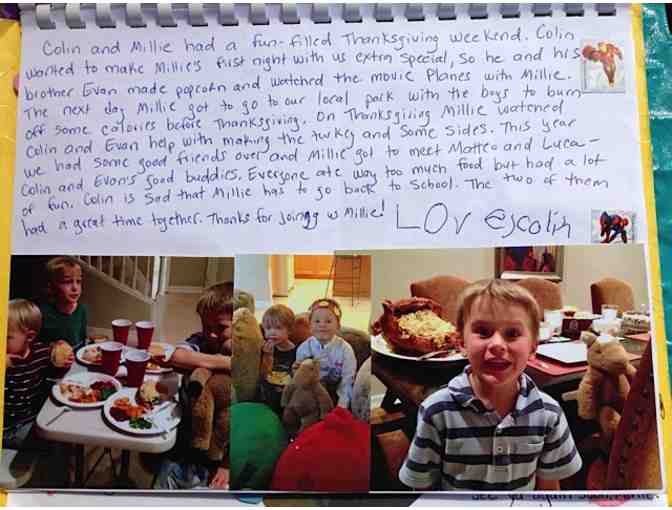 Colin and Millie had a fun-filled Thanksgiving weekend. Colin
wanted to make Millie's first night with us extra special, so he and his
brother Evan made popcorn and watched the movie Planes with Millie.
The next day Millie got to go to our local park with the boys to burn
off some calories before Thanksgiving. On Thanksgiving Millie watched
Colin and Evan help with making the turkey and some sides. This year
we had some good friends over and Millie got to meet Matteo and Luca-
Colin and Evan's good buddies. Everyone ate way too much food but had a lot
of fun. Colin is sad that Millie has to go back to school. The two of them
had a great time together. Thanks for joining us Millie! LOv e, colin
see ya again soon,